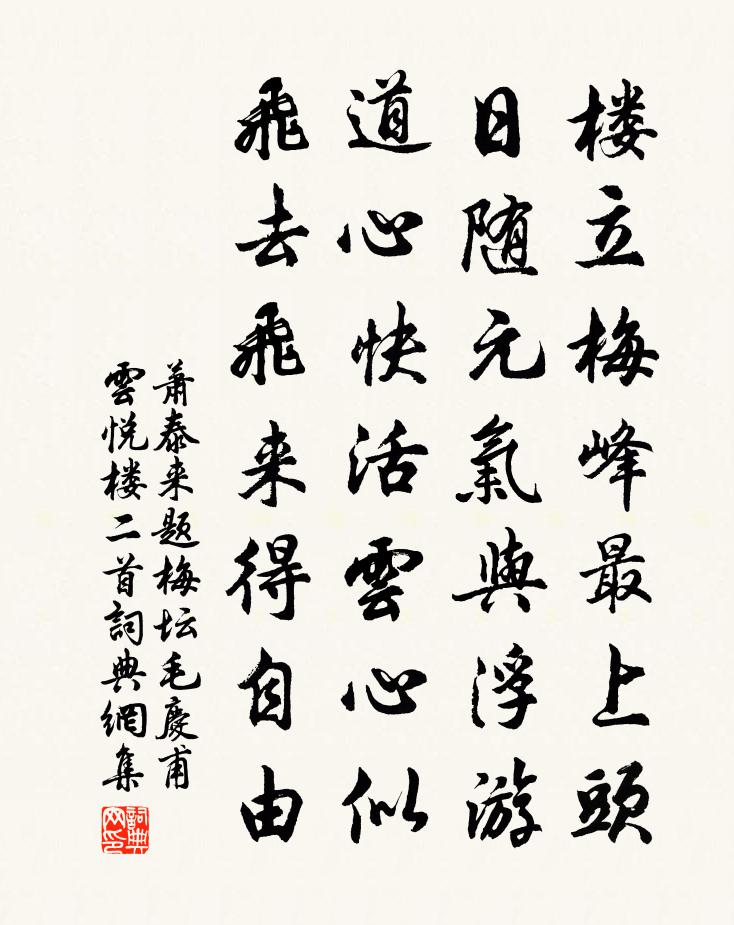 楼立梅峰最上頭
日随元氣與浮游
道心快活雲心似
飛去飛来得自由
萧泰来题梅坛毛慶甫
雲悦楼二首詞典網集
詞典网印